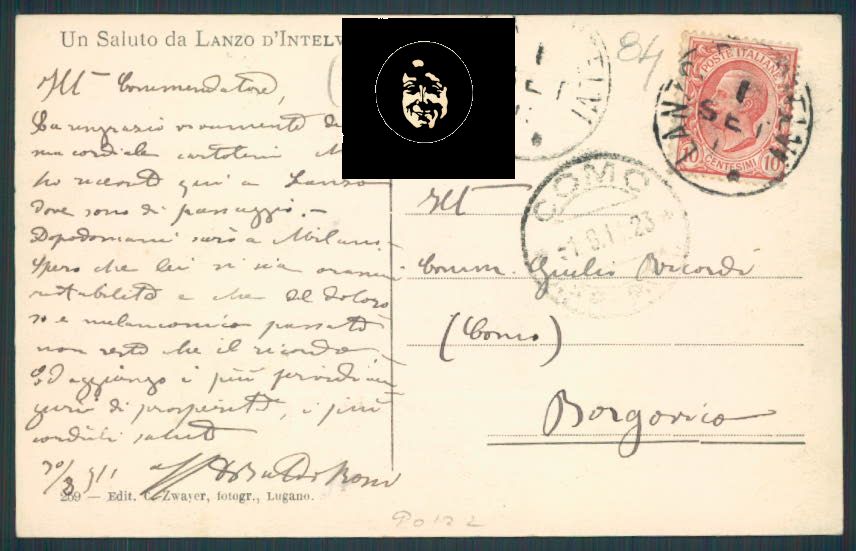 Un Saluto da LANZO D'INTELV
Ill Commendatore,
La ringrazio vivamente
cordiale cartolina
qui a Lanzo
dove sono di passaggio.-
Dopodomani sarò a Milano.
Spero che lei si sia oramai
ristabilito e che del doloro
so e melanconico passato
non resti che il ricordo
Ed aggiungo i più fervidi au
guri di prosperità, i più
cordiali saluti
30/8 911
259 — Edit. C. Zwayer, fotogr., Lugano.
84
POSTE ITALIANE
CENTESIMI
10 10
LANZO D'INTELVI
1 SET
COMO
Ill
Comm. Giulio Ricordi
(Como)
Borgovico